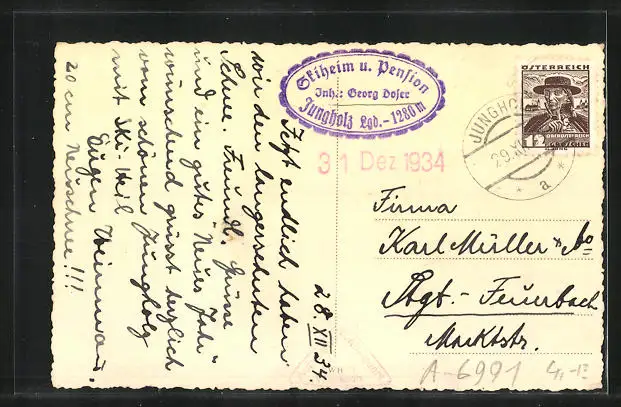 Skiheim u. Pension
Inh.: Georg Doser
Jungholz Lgd. - 1280 m
ÖSTERREICH
12
GROSCHEN
JUNGHO
29.XI
* a *
31 Dez 1934
28 XII 34.
Jetzt endlich haben
wir den langersehnten
Schnee. Freundl. Grüsse
und ein gutes "Neues Jahr"
wünschend grüsst herzlich
vom schönen Jungholz
mit Ski-Heil
Eugen
20 cm Neuschnee!!!
Firma
Karl Müller & Co
Stgt.-Feuerbach
Marktstr.
A-6991